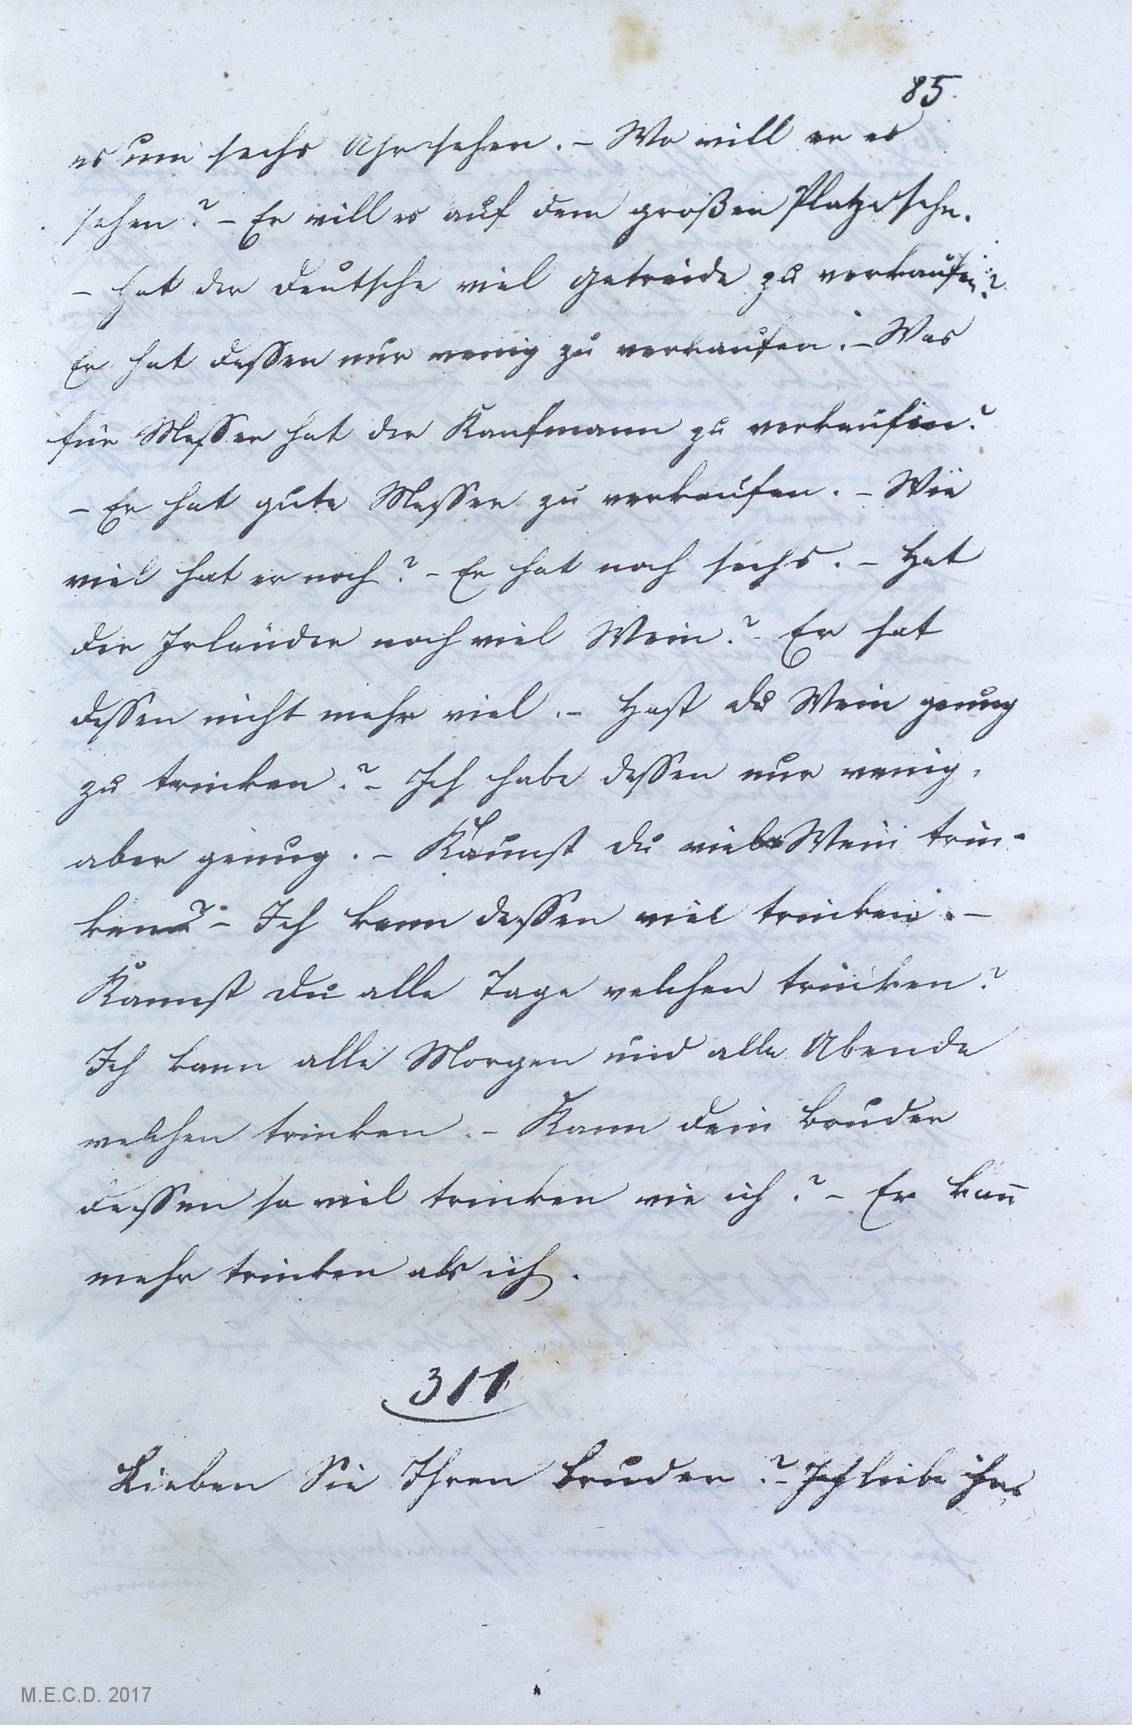 85.
es um sechs Uhr sehen. – Wo will er es
sehen? – Er will es auf dem großen Platze sehn.
– Hat der Deutsche viel Getreide zu verkaufen?
Er hat dessen nur wenig zu verkaufen. – Was
für Messer hat der Kaufmann zu verkaufen?
– Er hat gute Messer zu verkaufen. – Wie
viel hat er noch? – Er hat noch sechs. – Hat
der Irländer noch viel Wein? – Er hat
dessen nicht mehr viel. – Hast du Wein genug
zu trinken? – Ich habe dessen nur wenig,
aber genug. – Kannst du viel Wein trin-
ken? – Ich kann dessen viel trinken. –
Kannst du alle Tage welchen trinken?
Ich kann alle Morgen und alle Abende
welchen trinken. – Kann dein Bruder
dessen so viel trinken wie ich? – Er kan̄
mehr trinken als ich.
311
Lieben Sie Ihren Bruder? – Ich liebe ihn
M.E.C.D. 2017